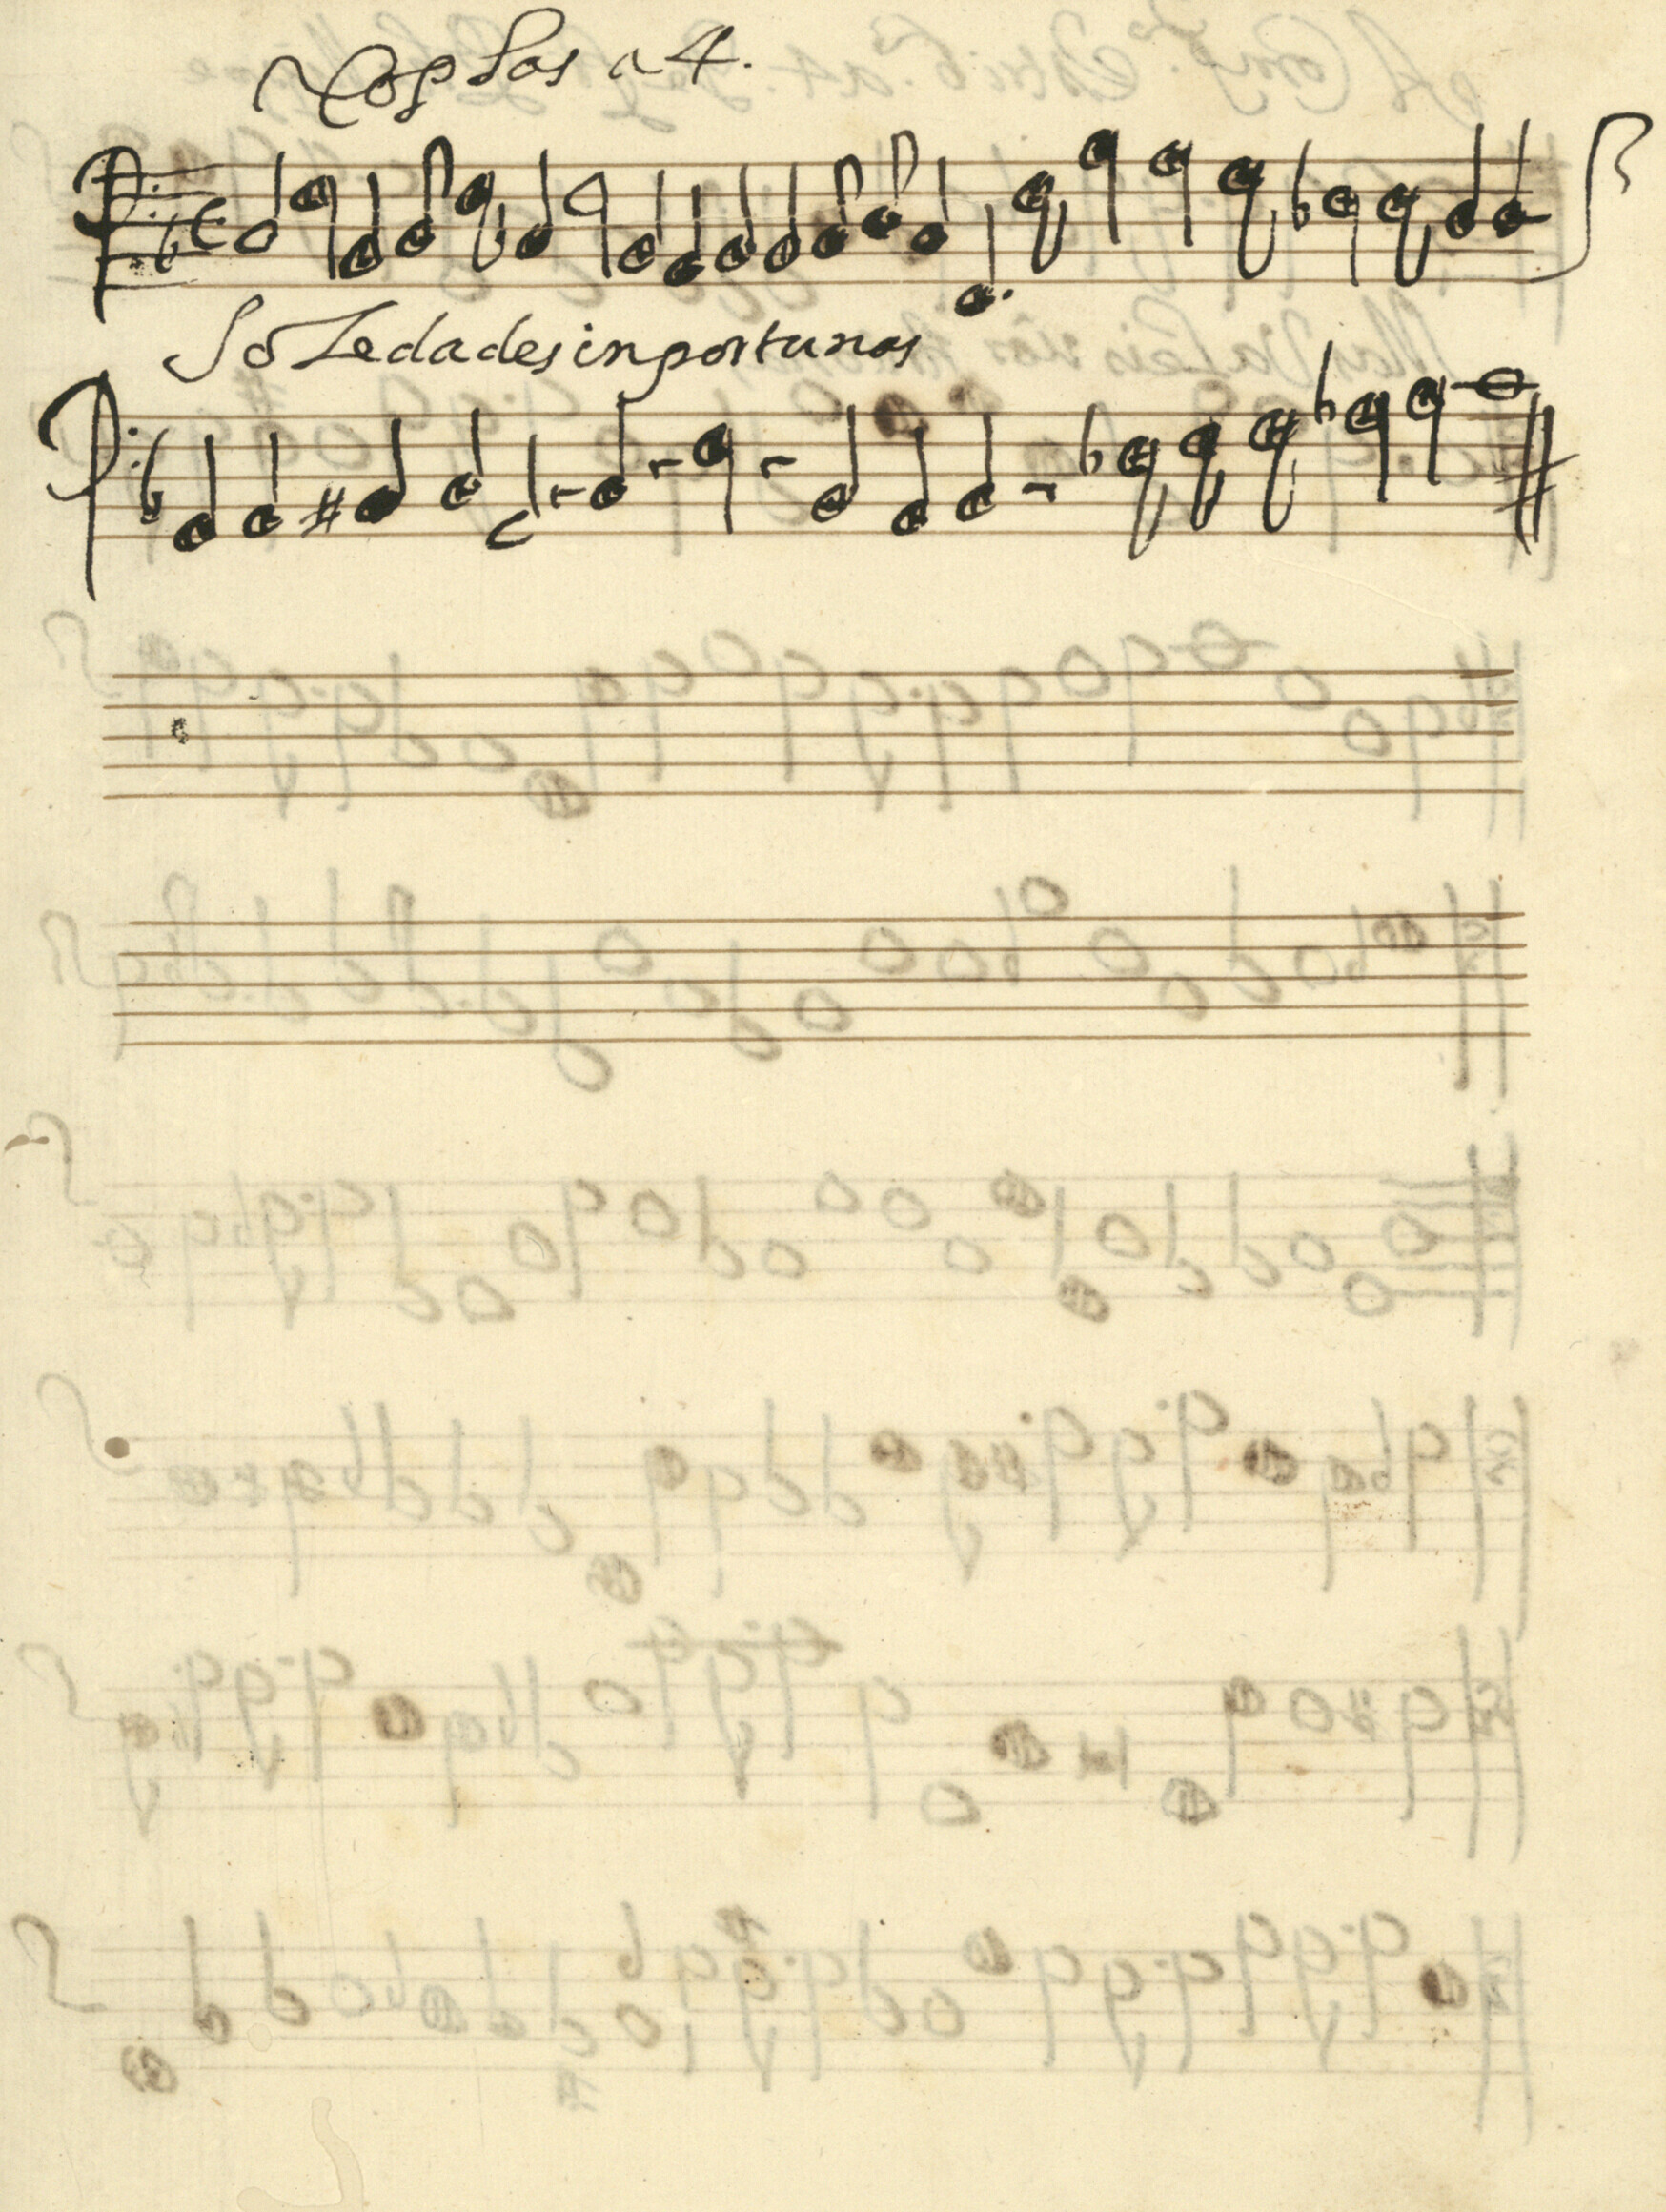 Coplas a 4.
Soledades inportunas